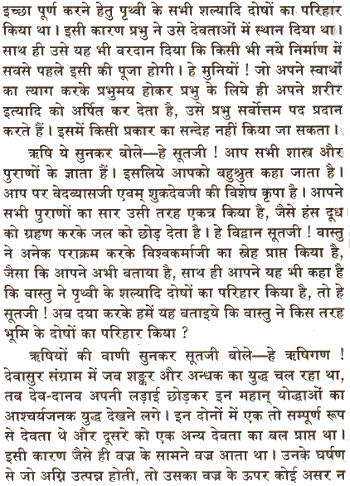 इच्छा पूर्ण करने हेतु पृथ्वी के सभी शल्यादि दोषों का परिहार
किया था। इसी कारण प्रभु ने उसे देवताओं में स्थान दिया था।
साथ ही उसे यह भी वरदान दिया कि किसी भी नये निर्माण में
सबसे पहले इसी की पूजा होगी। हे मुनियों ! जो अपने स्वार्थों
का त्याग करके प्रभुमय होकर प्रभु के लिये ही अपने शरीर
इत्यादि को अर्पित कर देता है, उसे प्रभु सर्वोत्तम पद प्रदान
करते हैं। इसमें किसी प्रकार का सन्देह नहीं किया जा सकता।
ऋषि ये सुनकर बोले—हे सूतजी ! आप सभी शास्त्र और
पुराणों के ज्ञाता हैं। इसलिये आपको बहुश्रुत कहा जाता है।
आप पर वेदव्यासजी एवम् शुकदेवजी की विशेष कृपा है। आपने
सभी पुराणों का सार उसी तरह एकत्र किया है, जैसे हंस दूध
को ग्रहण करके जल को छोड़ देता है। हे विद्वान सूतजी ! वास्तु
ने अनेक पराक्रम करके विश्वकर्माजी का स्नेह प्राप्त किया है,
जैसा कि आपने अभी बताया है, साथ ही आपने यह भी कहा है
कि वास्तु ने पृथ्वी के शल्यादि दोषों का परिहार किया है, तो हे
सूतजी ! अब दया करके हमें यह बताइये कि वास्तु ने किस तरह
भूमि के दोषों का परिहार किया ?
ऋषियों की वाणी सुनकर सूतजी बोले—हे ऋषिगण !
देवासुर संग्राम में जब शङ्कर और अन्धक का युद्ध चल रहा था,
तब देव-दानव अपनी लड़ाई छोड़कर इन महान् योद्धाओं का
आश्चर्यजनक युद्ध देखने लगे। इन दोनों में एक तो सम्पूर्ण रूप
से देवता थे और दूसरे को एक अन्य देवता का बल प्राप्त था।
इसी कारण जैसे ही वज्र के सामने वज्र आता था। उनके घर्षण
से जो अग्नि उत्पन्न होती, तो उसका वज्र के ऊपर कोई असर न